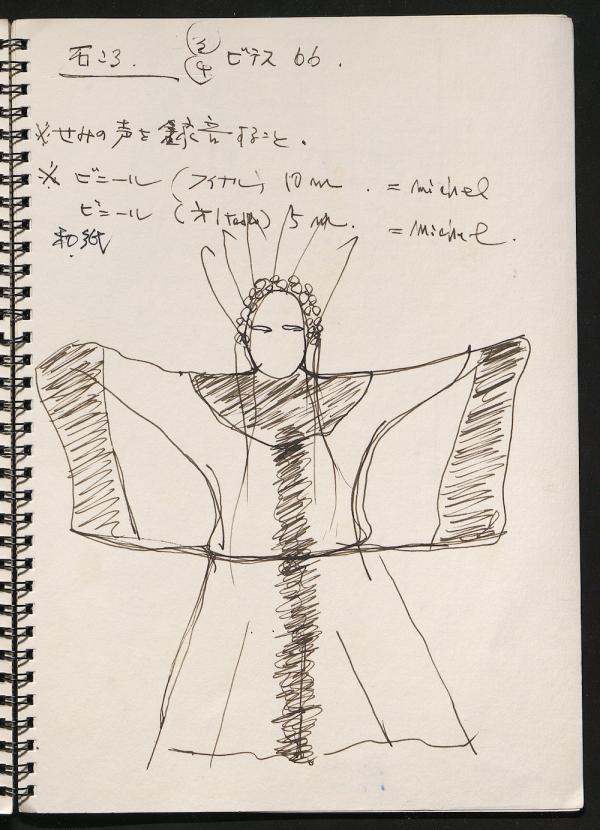 石ころ. ③④ ビデス 66.
※せみの声を録音すること.
※ ビニール (ファイナル) 10 m . = michel
ビニール ( ) 5 m. = Michel.
和紙